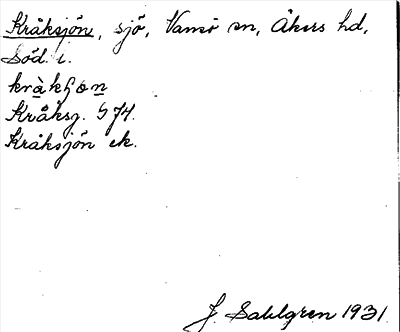 Kråksjön, sjö, Vansö sn, Åkers hd,
Söd. l.
kràkʃo̱n
Kråksg. G 74.
Kråksjön ek.
J. Sahlgren 1931.